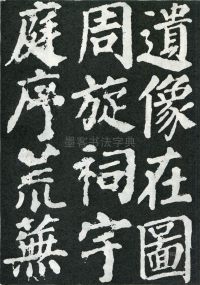 遺像在圖
周旋祠宇
庭序荒蕪
墨客书法字典